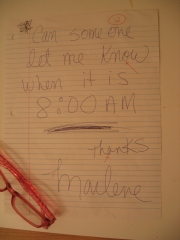 2
* Can someone
let me know
when it is
8:00 AM
Thanks
Marlene